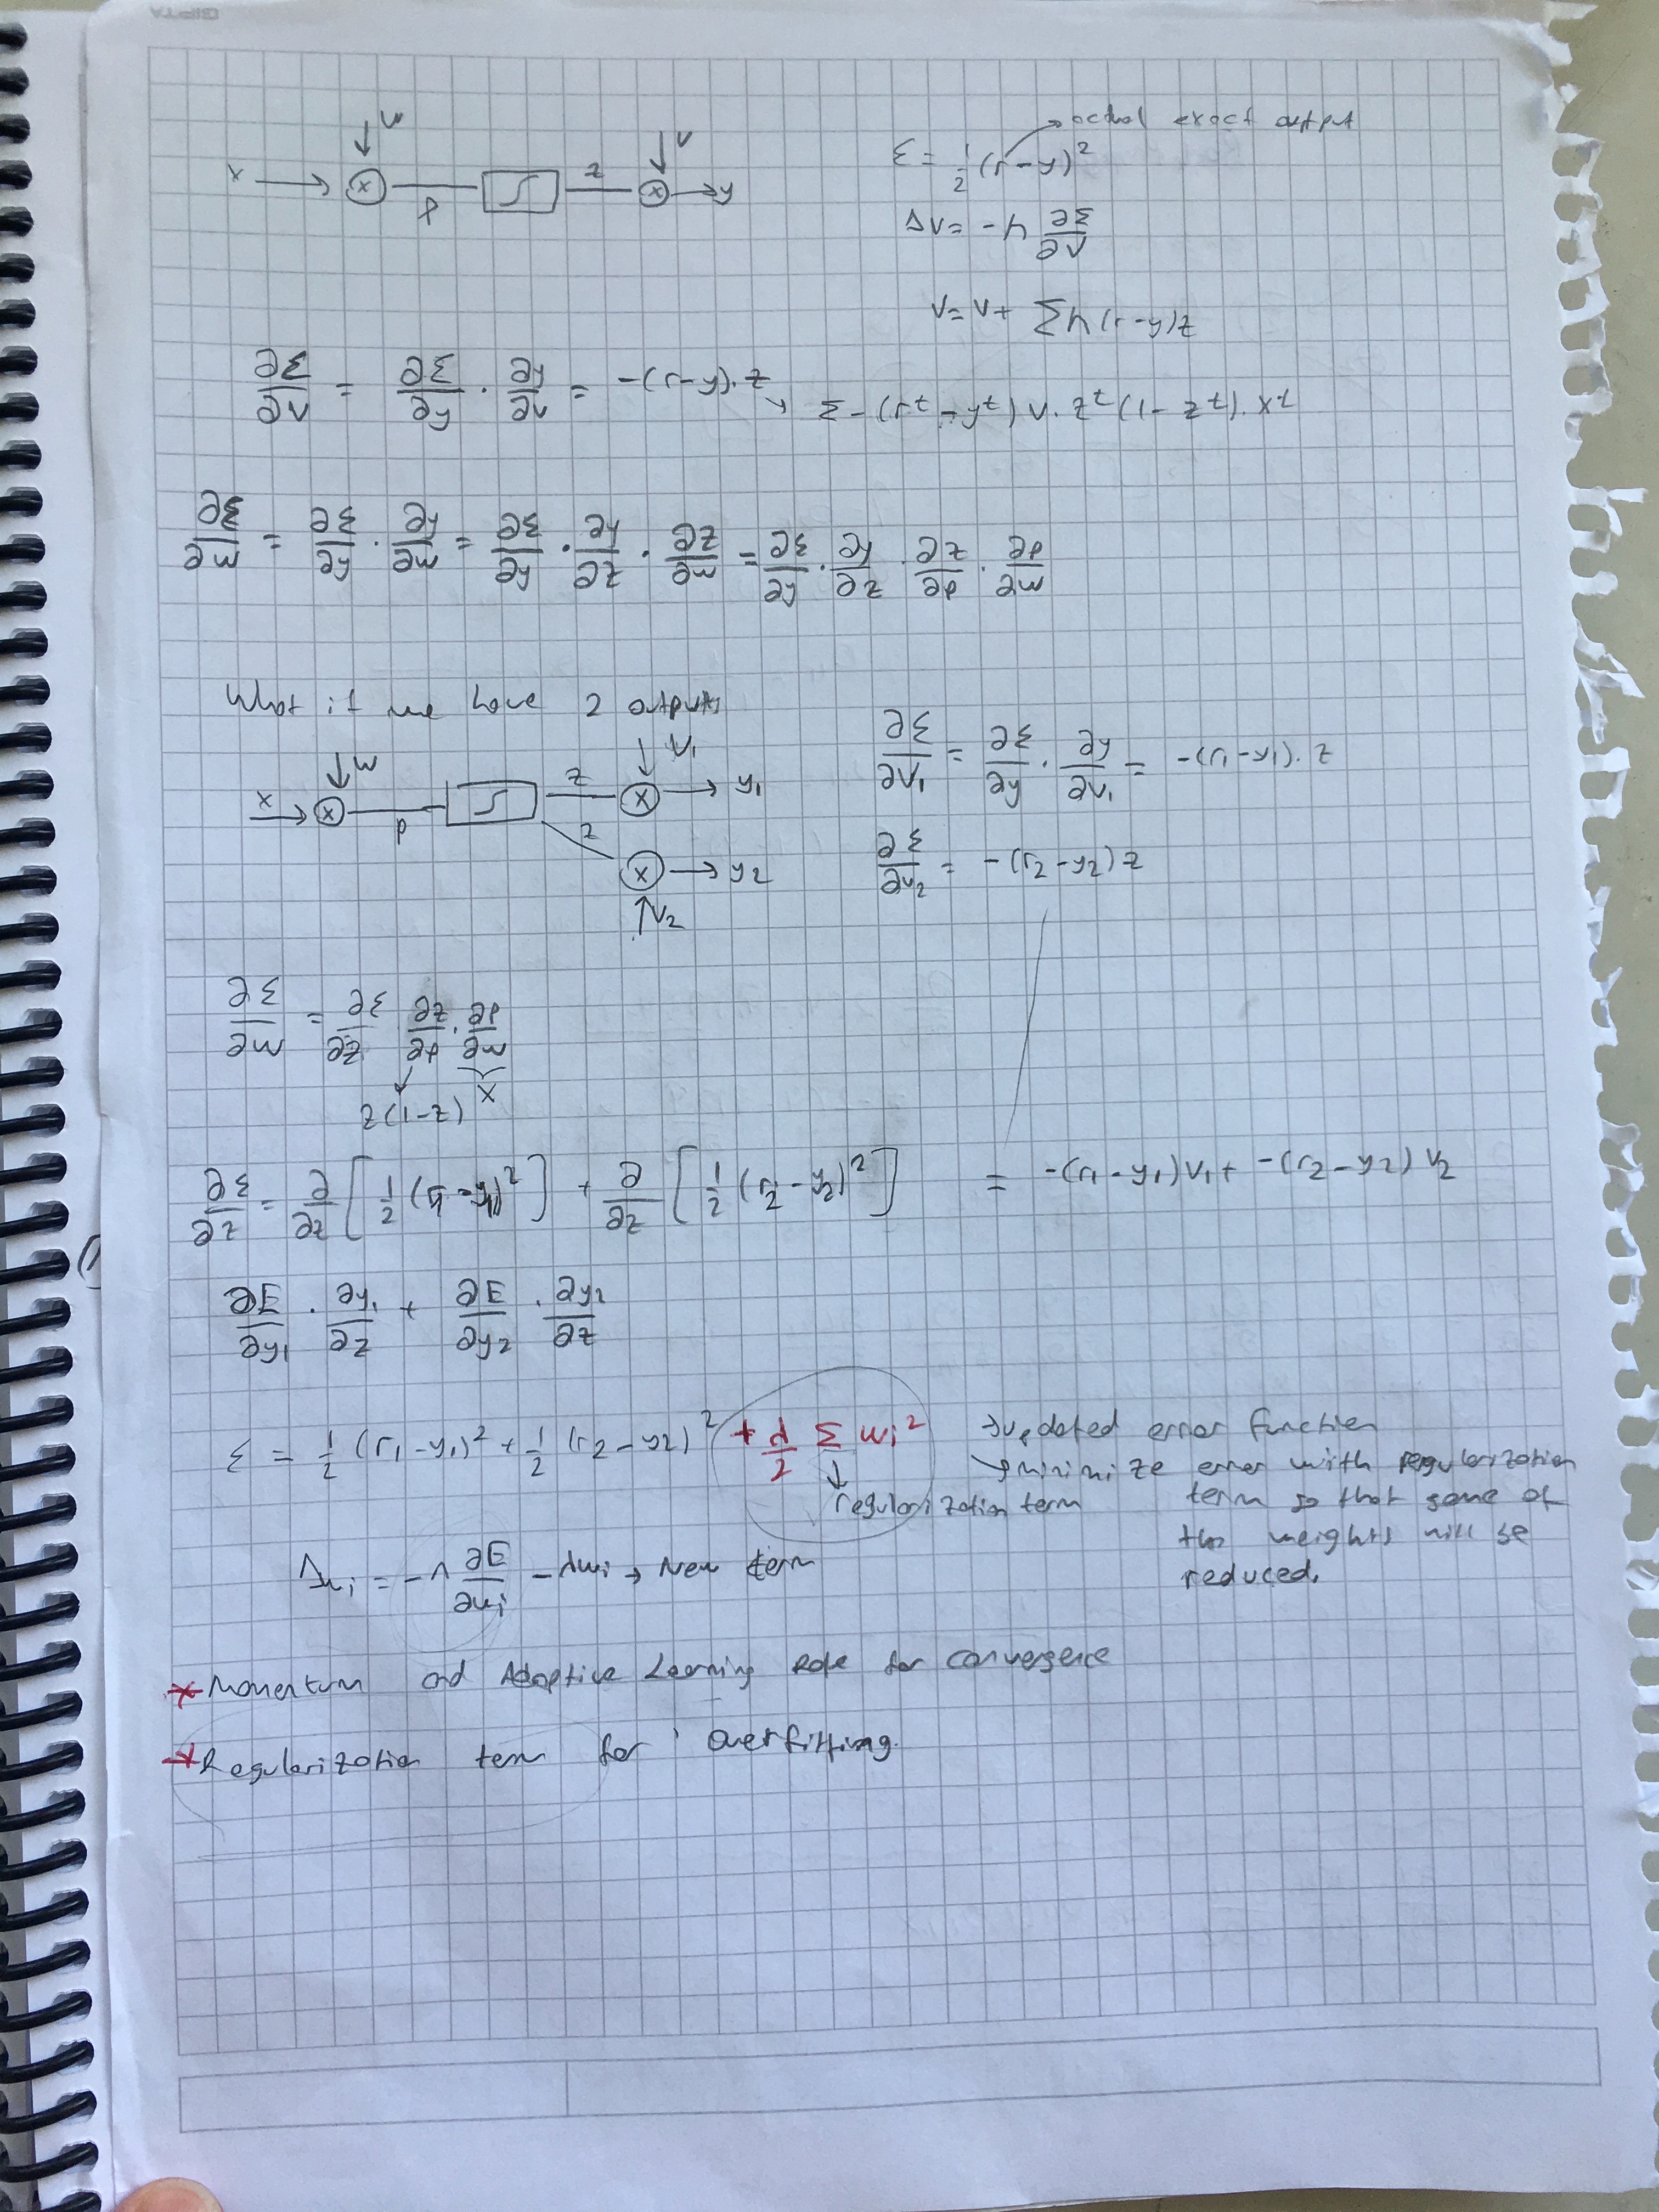 GIPTA
x → ⊗ p ∫ z ⊗ → y
w v
→ actual exact output
ε = 1/2 (r-y)²
Δv = -η ∂ε/∂v
v = v + Σ η (r-y) z
∂ε/∂v = ∂ε/∂y · ∂y/∂v = -(r-y)·z
→ Σ -(rᵗ - yᵗ) v · zᵗ (1 - zᵗ) · xᵗ
∂ε/∂w = ∂ε/∂y · ∂y/∂w = ∂ε/∂y · ∂y/∂z · ∂z/∂w = ∂ε/∂y · ∂y/∂z · ∂z/∂p · ∂p/∂w
What if we have 2 outputs
x → ⊗ p ∫ z ⊗ → y₁
w v₁
z ⊗ → y₂
v₂
∂ε/∂v₁ = ∂ε/∂y · ∂y/∂v₁ = -(r₁-y₁)·z
∂ε/∂v₂ = -(r₂-y₂) z
∂ε/∂w = ∂ε/∂z ∂z/∂p · ∂p/∂w
z(1-z) x
∂ε/∂z = ∂/∂z [1/2 (r₁-y₁)²] + ∂/∂z [1/2 (r₂-y₂)²] = -(r₁-y₁)v₁ + -(r₂-y₂) v₂
∂E/∂y₁ · ∂y₁/∂z + ∂E/∂y₂ · ∂y₂/∂z
ε = 1/2 (r₁-y₁)² + 1/2 (r₂-y₂)² + λ/2 Σ wᵢ²
regularization term
→ updated error function
→ minimize error with regularization
term so that some of
the weights will be
reduced.
Δwᵢ = -η ∂E/∂wᵢ - λwᵢ → New term
* Momentum and Adaptive Learning Rate for convergence
* Regularization term for overfitting.